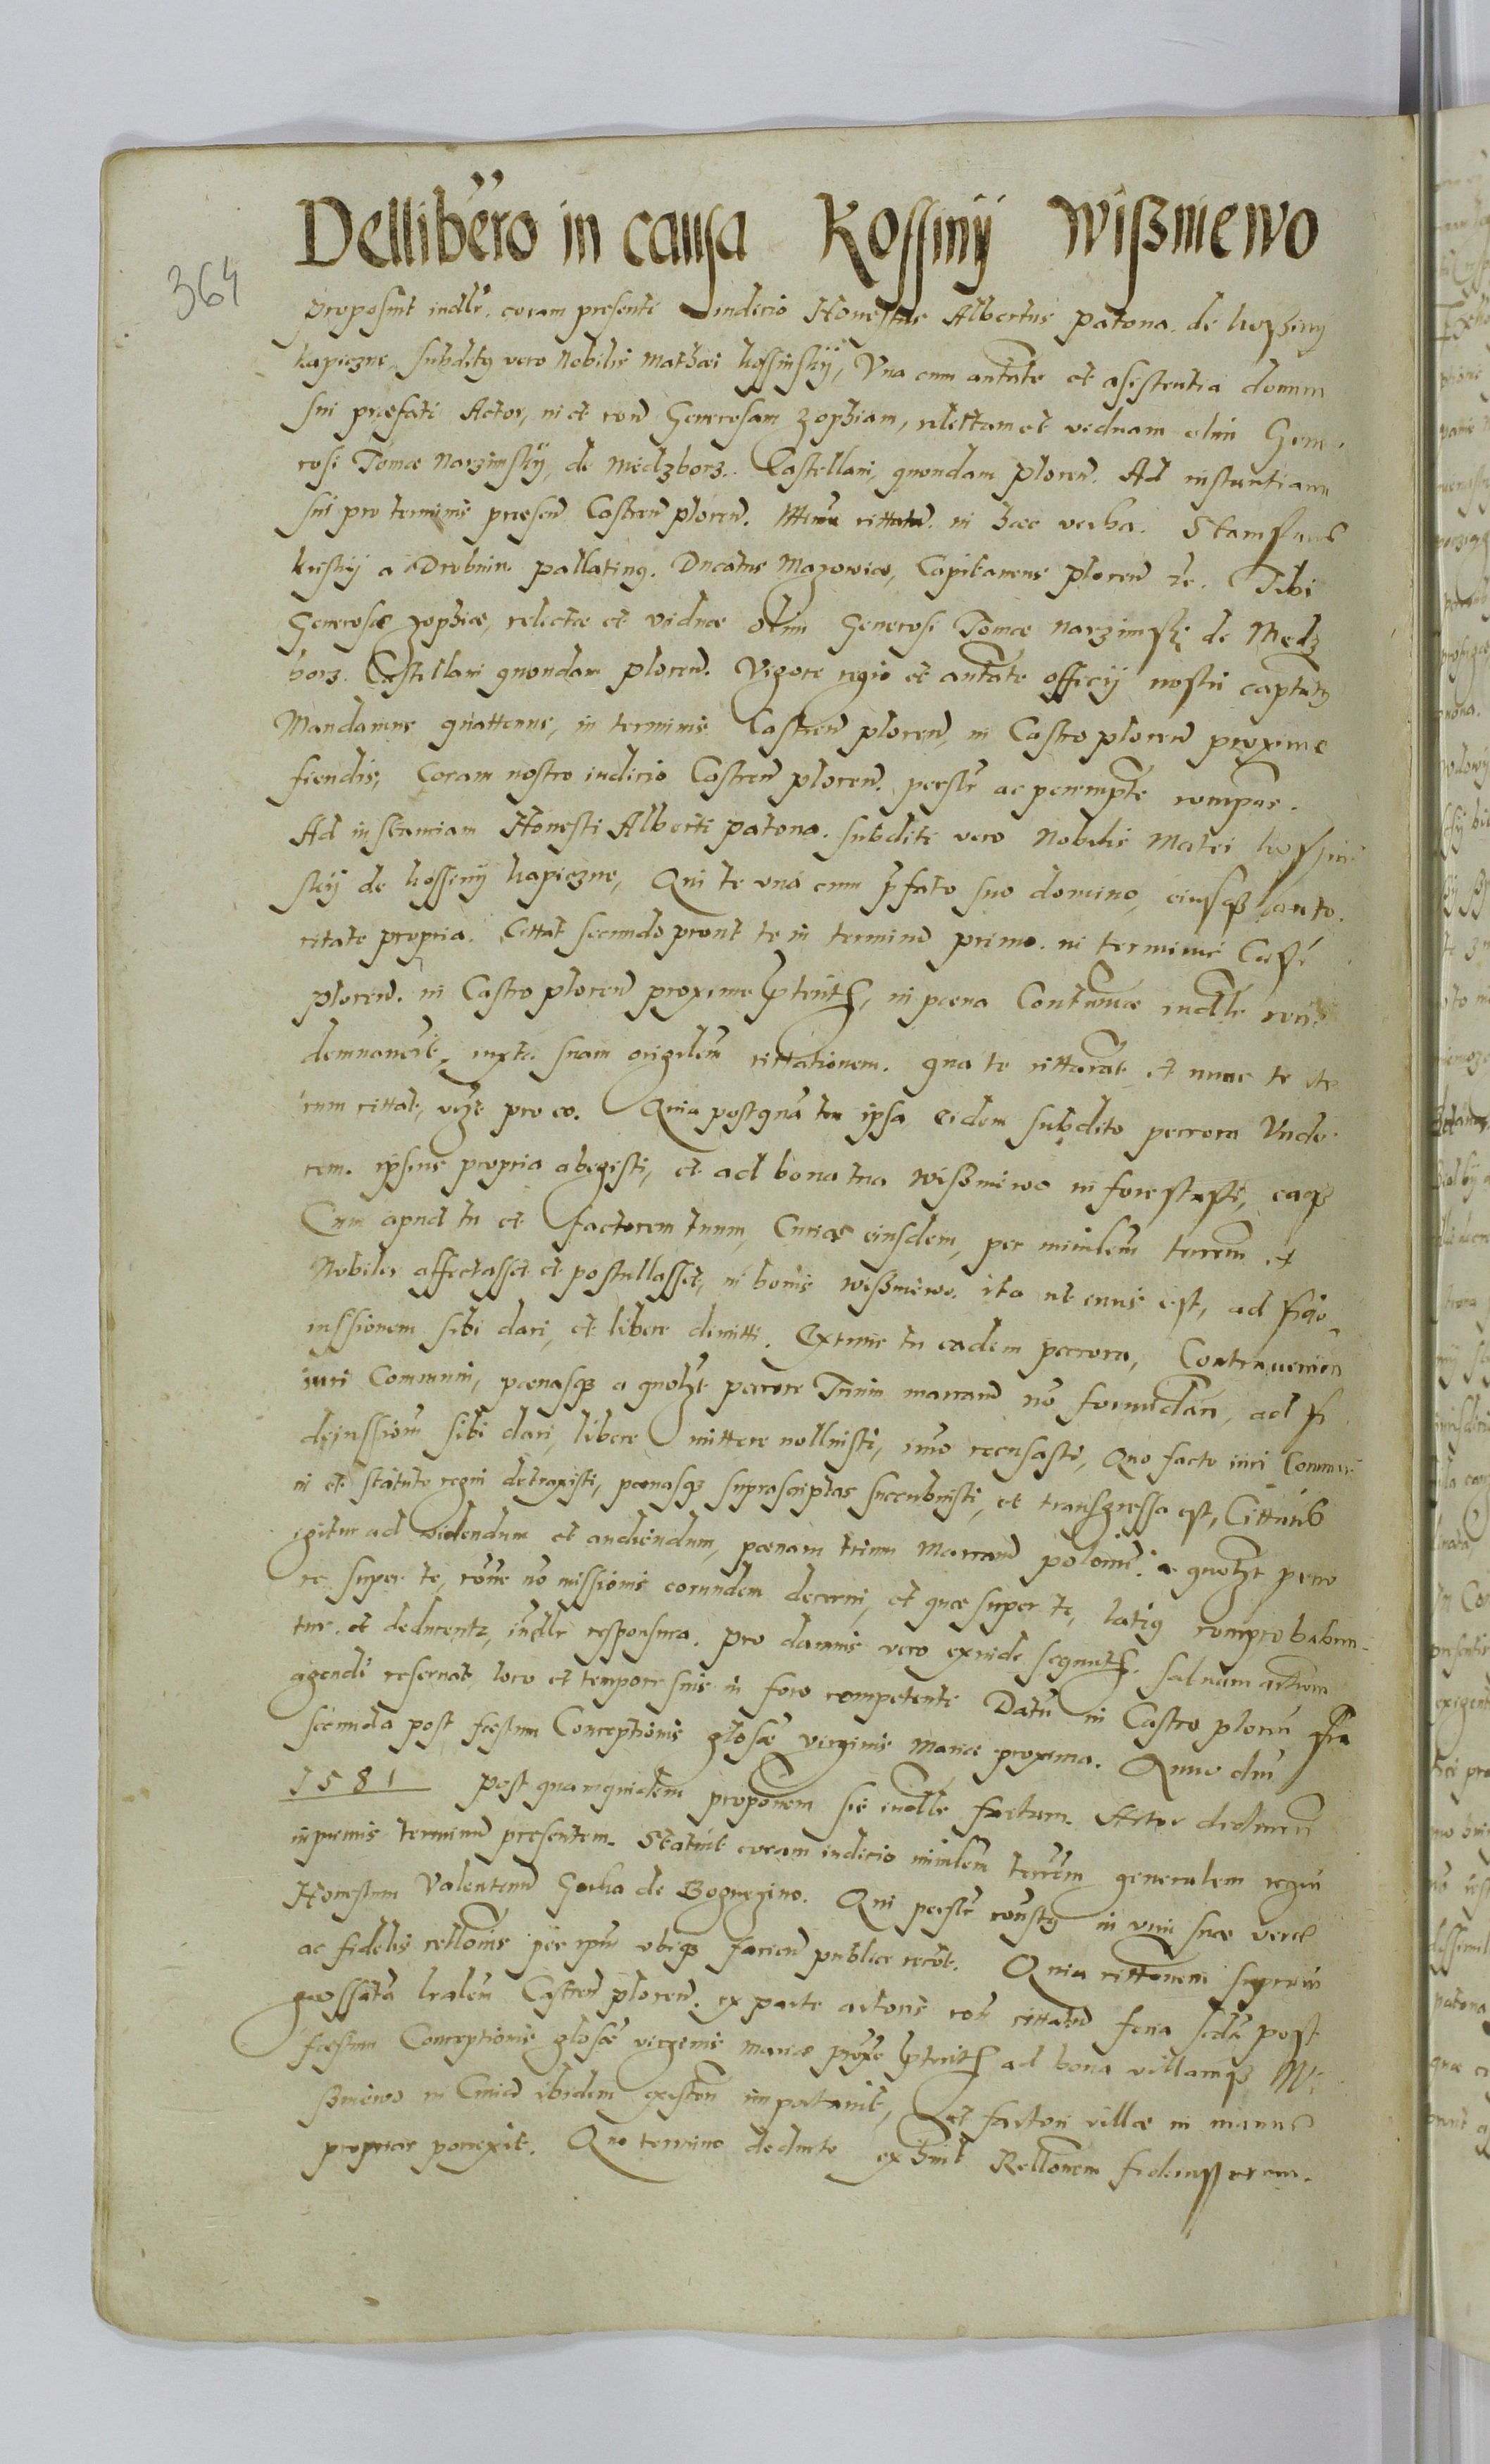 Dellibero in causa Kossiny Wißniewo
364
Proposuit iudlr. coram presenti iudicio Honestus Albertus patona. de koszeny
kapiczne, subditus vero Nobilis Mathæi kossinskÿ, Una cum auttate et asistentia domini
sui præfati Actor, in et con Generosam Zophiam, relictam et viduam olim Gene.
rosi Tomæ Narzimskÿ, de Miedzborz. Castellani, quondam plocen. Ad instantiam
sui pro terminis præsen Castren plocen. cittatu. in hæc verba. Stanislaus
kriskÿ a Drobnin pallatinus. Ducatus Mazowiæ, Capitaneus plocen etc. Tibi
Generosæ zophiæ, relictæ et viduæ olim Generosi Tomæ Narzimskj de Medz
borz. Castellani quondam plocen. Vigore regio et auttate officij nostri captulis
Mandamus quattenus, in terminis Castren plocen, in Castro plocen proxime
fiendis, Coram nostro iudicio Castren plocen. perslr ac perempte compar.
Ad instantiam Honesti Alberti patona. subditi vero Nobilis Matei kossin
skÿ de kossiny kapiczne, Qui te una cum pfato suo domino, eiusq auto.
ritate propria. Cittat secundo prout te in termino primo. in terminis Cast
plocen. in Castro plocen proxime pterits, in pœna Contumciæ iudlr con
demnaverit, iuxta suam origilem cittationem. qua te cittarat et nunc te ite
rum cittat, vzt pro eo. Quia postqua tu ipsa eidem subdito peccora Unde.
cem. ipsius propria abegisti, et ad bona tua Wißniewo in forestasti, eaq
Cum apud tu et factorem tuum, Curiæ eiusdem, per minlem terrem et
Nobiles affectasset et postullasset, in bonis Wißniewo. ita ut iuris est, ad fideo
iussionem sibi dari, et libere dimitti. Extunc tu eadem peccora, Contraveniens
iuri Communi, pœnasq a quolzt peccore Trium marcarum no formidan, ad fi
deiussiom sibi dari, libere mittere nolluisti, imo recusasti, Quo facto iuri Commu
ni et statuto regni detraxisti, pœnasq suprascriptas succubuisti, et transgressa est, Cittaris
igitur ad videndum et audiendum, pœnam trium Marcarum polonic. a quolzt pecco
re super te, rone no missionis eorundem decerni, et quæ super te, latius comprobabun-
tur. et deducentr, iudlr responsura. Pro damnis vero exinde sequuts. salvam actiom
agendi reservat, loco et tempore suis in foro competente Datu in Castro plocen fra
secunda post fæstum Conceptionis glosæ virginis Mariæ proxima. Anno dni
1581 Post quamquidem proponem sic iudlr factam. Actor deducen
inprimis terminu presentem. Statuit coram iudicio minlem terrem generalem regni
Honestum Valentinu Gocha de Bogusyno. Qui perslr constus in vim suæ veræ
ac fidelis relloins per ipm obiq facien publice recot. Quia cittonem suprain
grossatam lralem Castren plocen. ex parte actoris con cittatu feria scda post
fæstum Conceptionis glosæ virginis mariæ prox pterits ad bona villamq Wi
szniewo in Curia ibidem existen importavit, et factori villæ in manus
proprias porrexit. Quo termino deducto exhibuit Rellonem fideiussorem.